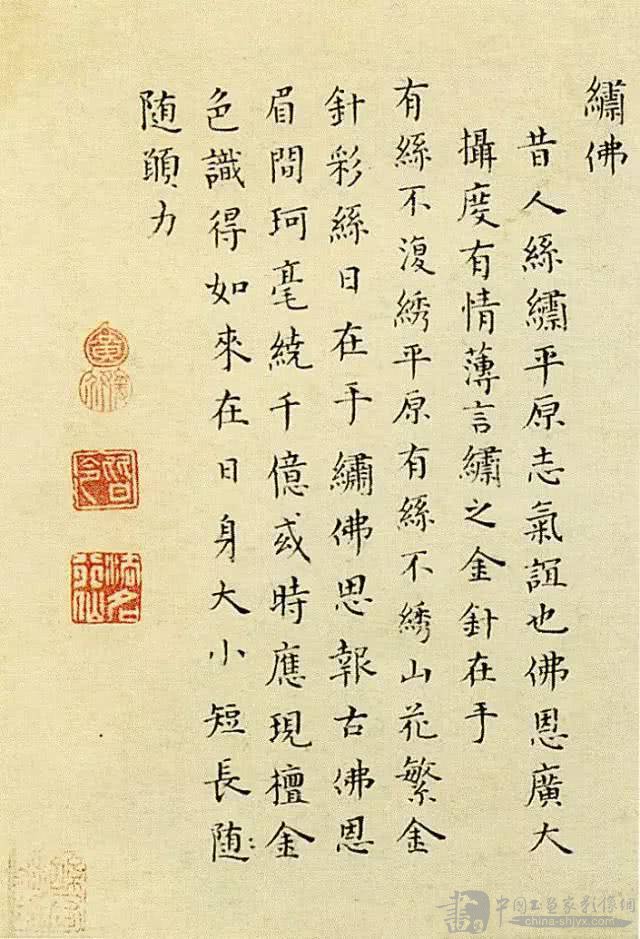 繡佛
昔人絲繡平原志氣誼也佛恩廣大
攝度有情薄言繡之金針在手
有絲不復綉平原有絲不綉山花繁金
針彩絲日在手繡佛思報古佛恩
眉間珂毫繞千億或時應現檀金
色識得如來在日身大小短長随:
随願力
china-shjyx.com